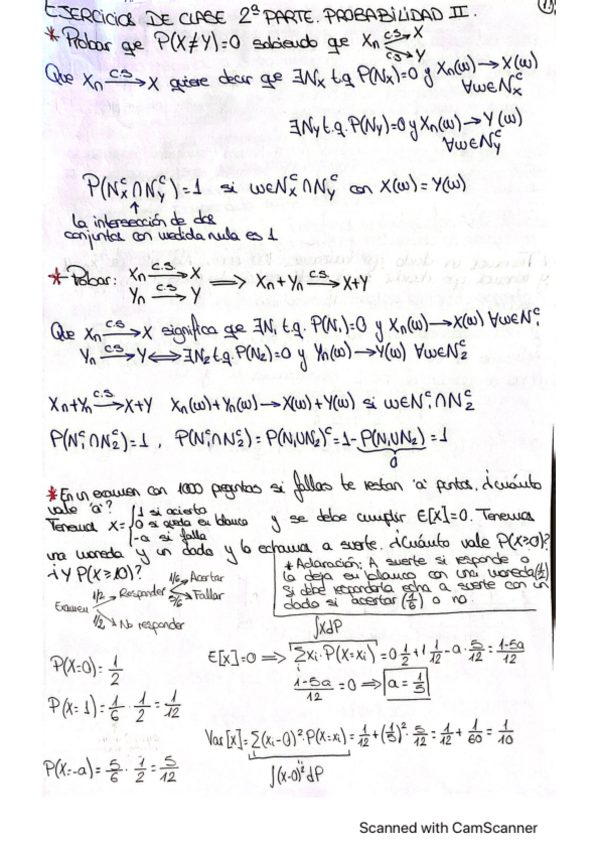 EJERCICIOS DE CLASE 2ª PARTE. PROBABILIDAD II.
* Probar qe P(X≠Y)=0 sabiendo qe Xn c.s→ X
c.s→ Y
Que Xn c.s→ X quiere decir qe ∃Nx t.q P(Nx)=0 y Xn(ω)→X(ω) ∀ω∈Nx^c
∃Ny t.q. P(Ny)=0 y Xn(ω)→Y(ω) ∀ω∈Ny^c
P(Nx^c∩Ny^c)=1 si ω∈Nx^c∩Ny^c con X(ω)=Y(ω)
↑
la intersección de dos
conjuntos con medida nula es 1
* Probar: Xn c.s→ X
Yn c.s→ Y ⟹ Xn+Yn c.s→ X+Y
Que Xn c.s→ X significa qe ∃N₁ t.q. P(N₁)=0 y Xn(ω)→X(ω) ∀ω∈N₁^c
Yn c.s→ Y ⟺ ∃N₂ t.q. P(N₂)=0 y Yn(ω)→Y(ω) ∀ω∈N₂^c
Xn+Yn c.s→ X+Y Xn(ω)+Yn(ω)→X(ω)+Y(ω) si ω∈N₁^c∩N₂^c
P(N₁^c∩N₂^c)=1, P(N₁^c∩N₂^c)=P(N₁∪N₂)^c=1-P(N₁∪N₂)=1
0
* En un examen con 1000 preguntas si fallas te restan 'a' puntos. ¿cuánto
vale 'a'?
Tenemos X= { 1 si acierta
0 si queda en blanco
-a si falla
y se debe cumplir E[X]=0. Tenemos
una moneda y un dado y lo echamos a suerte. ¿Cuánto vale P(X≥0)?
¿Y P(X≥10)?
* Aclaración: A suerte si responde o
la deja en blanco con una moneda(1/2)
Si debe responderla echa a suerte con un
dado si acertar (1/6) o no.
Examen 1/2 → Responder 1/6 → Acertar
5/6 → Fallar
1/2 → No responder
∫XdP
P(X=0)=1/2
E[X]=0 ⟹ Σxi·P(X=xi)=0·1/2+1·1/12-a·5/12=1-5a/12
i
1-5a/12=0 ⟹ a=1/5
P(X=1)=1/6·1/2=1/12
Var[X]=Σ(xi-0)²·P(X=xi)=1/12+(1/5)²·5/12=1/12+1/60=1/10
P(X=-a)=5/6·1/2=5/12
∫(x-0)²dP
Scanned with CamScanner